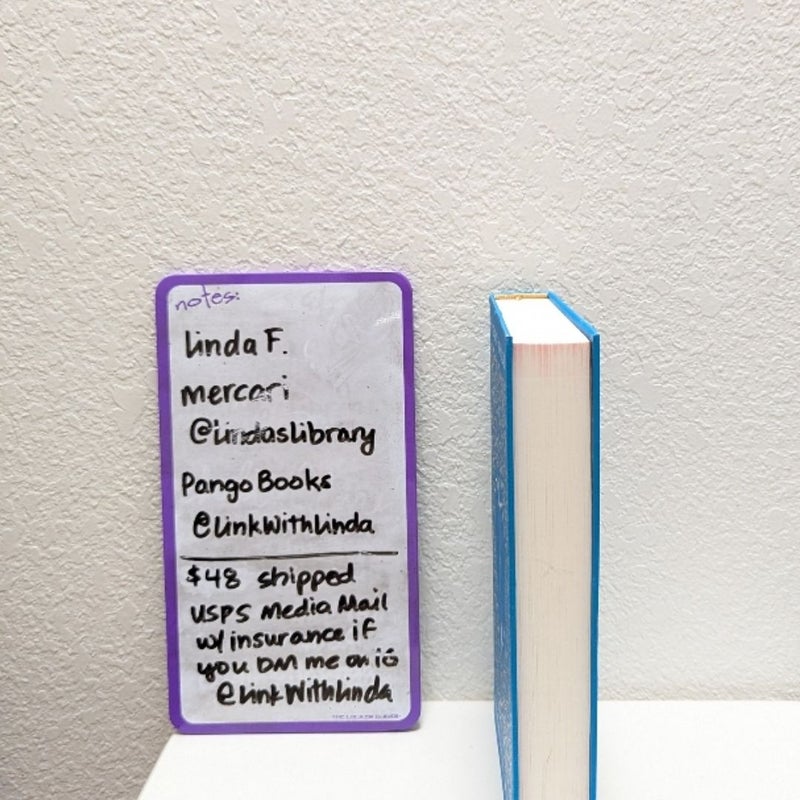 notes:
Linda F.
mercari
@lindaslibrary
Pango Books
@LinkWithLinda
$48 shipped
USPS Media Mail
w/ insurance if
you DM me on iG
@LinkWithLinda